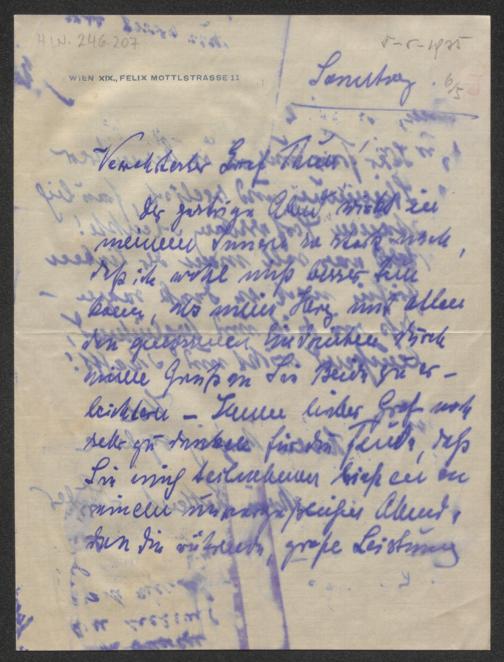 HIN-246.207
5-5-1925
WIEN XIX., FELIX MOTTLSTRASSE 11
Samstag
Verehrtester Graf Thun!
Der gestrige Abend wirkt in
meinem Innern so stark nach,
daß ich wohl nichts besser tun
kann, als mein Herz mit allen
den gewonnenen Eindrücken durch
meine Grüße an Sie Beide zu er-
leichtern – Ihnen lieber Graf noch
sehr zu danken für die Freude, daß
Sie mich teilnehmen ließen an
einem unvergeßlichen Abend,
dan die rührende, große Leistung